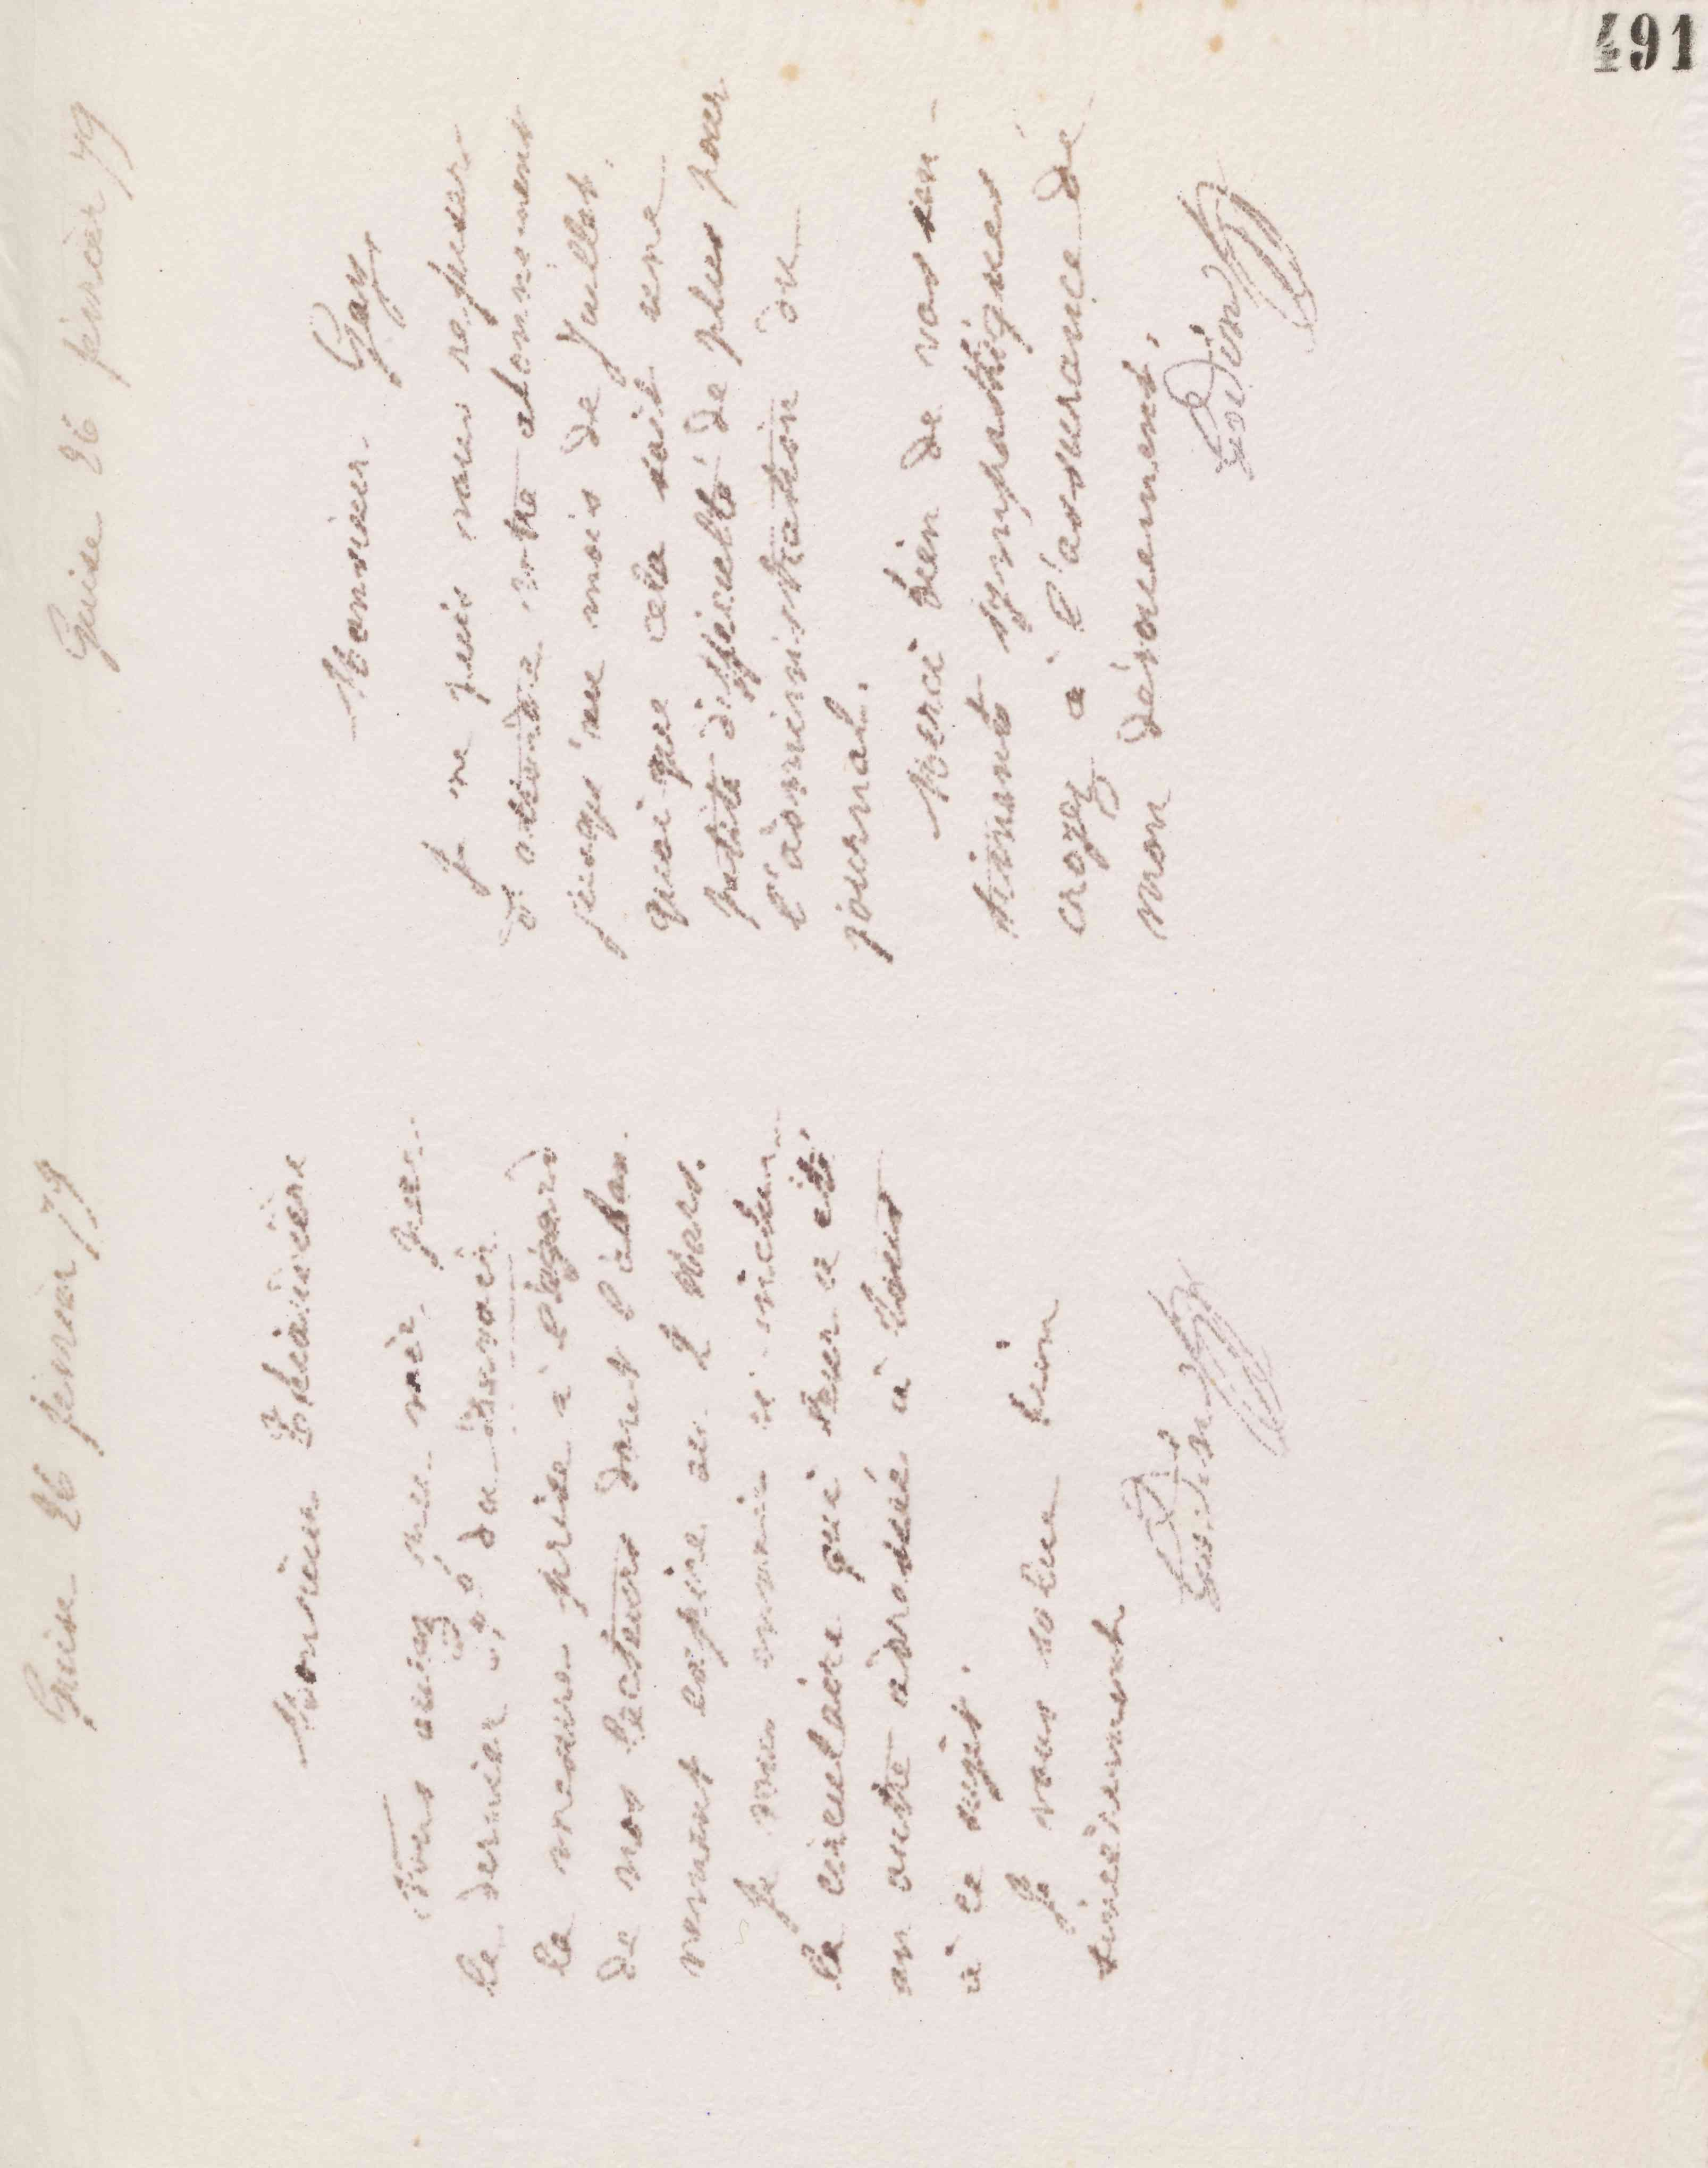 491
Guise 26 février 79
Monsieur
Vous avez pu voir par
le dernier n° du devoir
la mesure prise à l'égard
de nos lecteurs dont l'abon
nement expire au 2 Mars.
Je vous envoie ci inclus
la circulaire qui leur a été
en outre adressée à tous
à ce sujet.
Je vous salue bien
sincèrement
Godin
Guise 26 février 79
Monsieur Gay,
Je ne puis vous refuser
d'attendre votre abonnement
jusqu'au mois de Juillet.
quoique cela soit une
petite difficulté de plus pour
l'administration du
journal.
Merci bien de vos sen-
timents sympathiques
croyez à l'assurance de
mon dévouement.
Godin